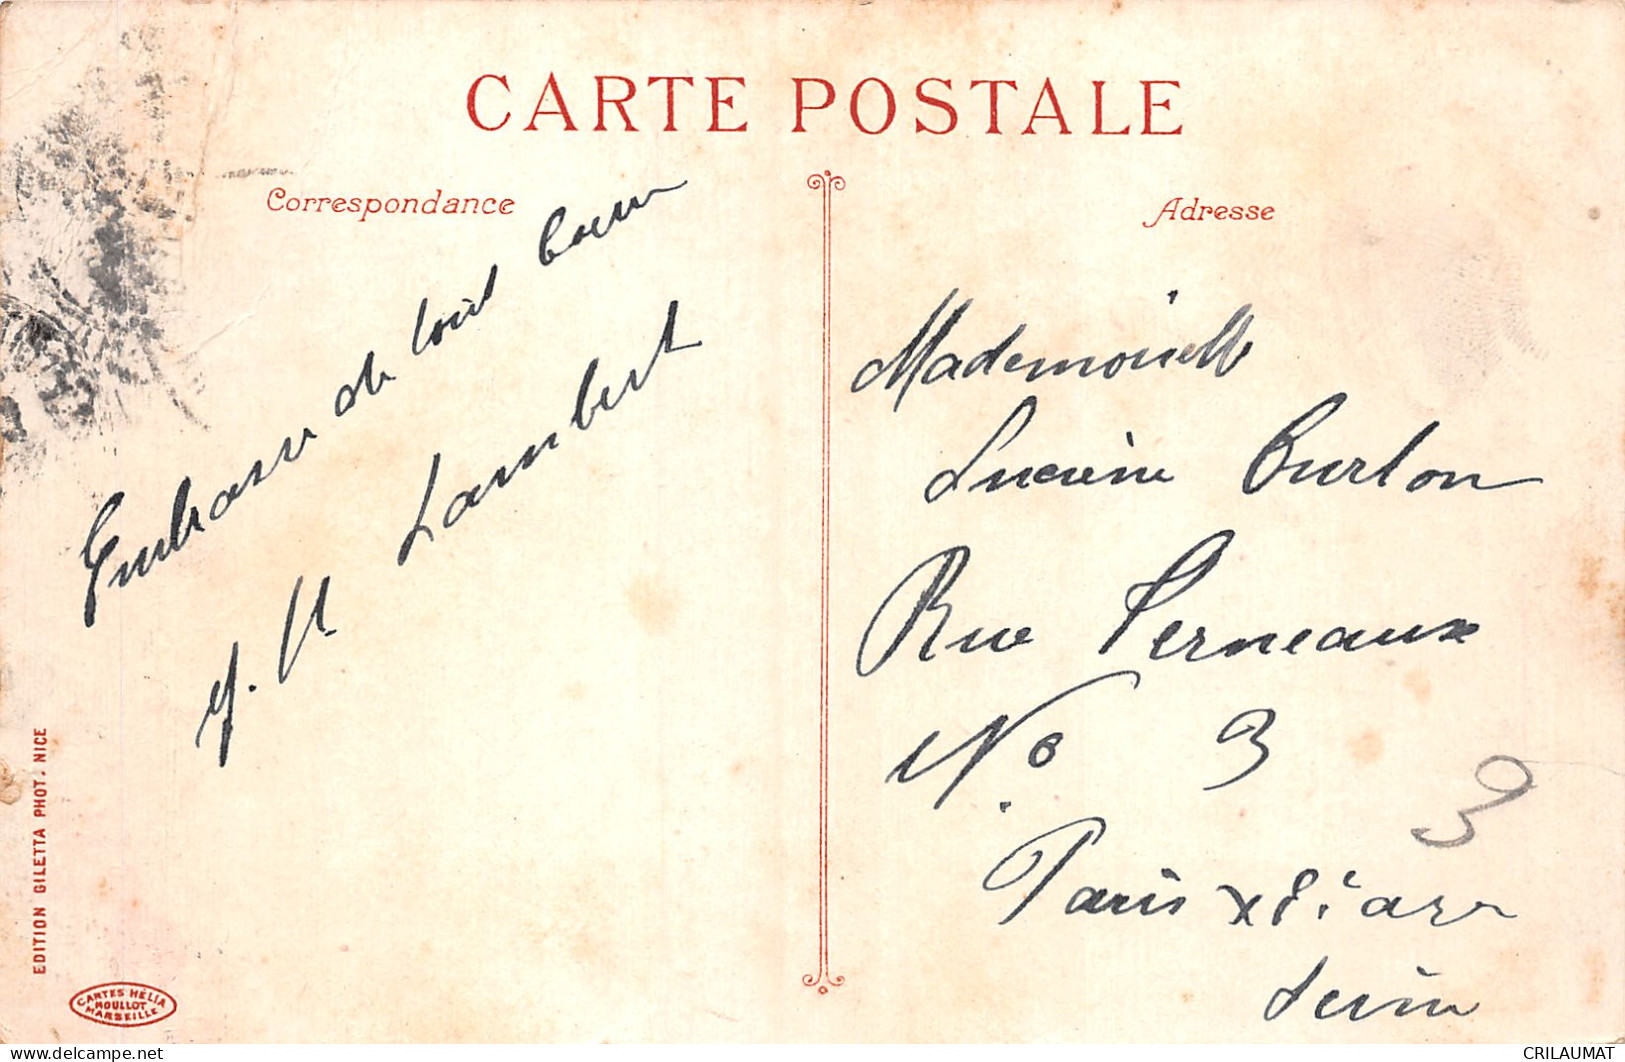 CARTE POSTALE
Correspondance
Embrasse de tout Coeur
Lambert
Adresse
Mademoiselle
Lucienne Curlon
Rue Perneaux
No 3
3
Paris x è arr
Seine
EDITION GILETTA PHOT. NICE
CARTES HÉLIA
MOULLOT
MARSEILLE
CRILAUMAT